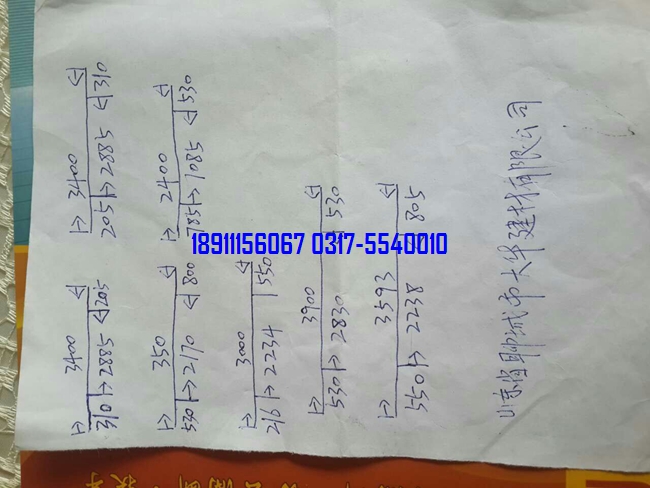 3400
310 2885 205
3400
205 2885 310
350
530 2170 800
2400
785 1085 530
3000
216 2234 550
3900
530 2830 530
3593
550 2238 805
山东省聊城市大华建材有限公司
18911156067 0317-5540010